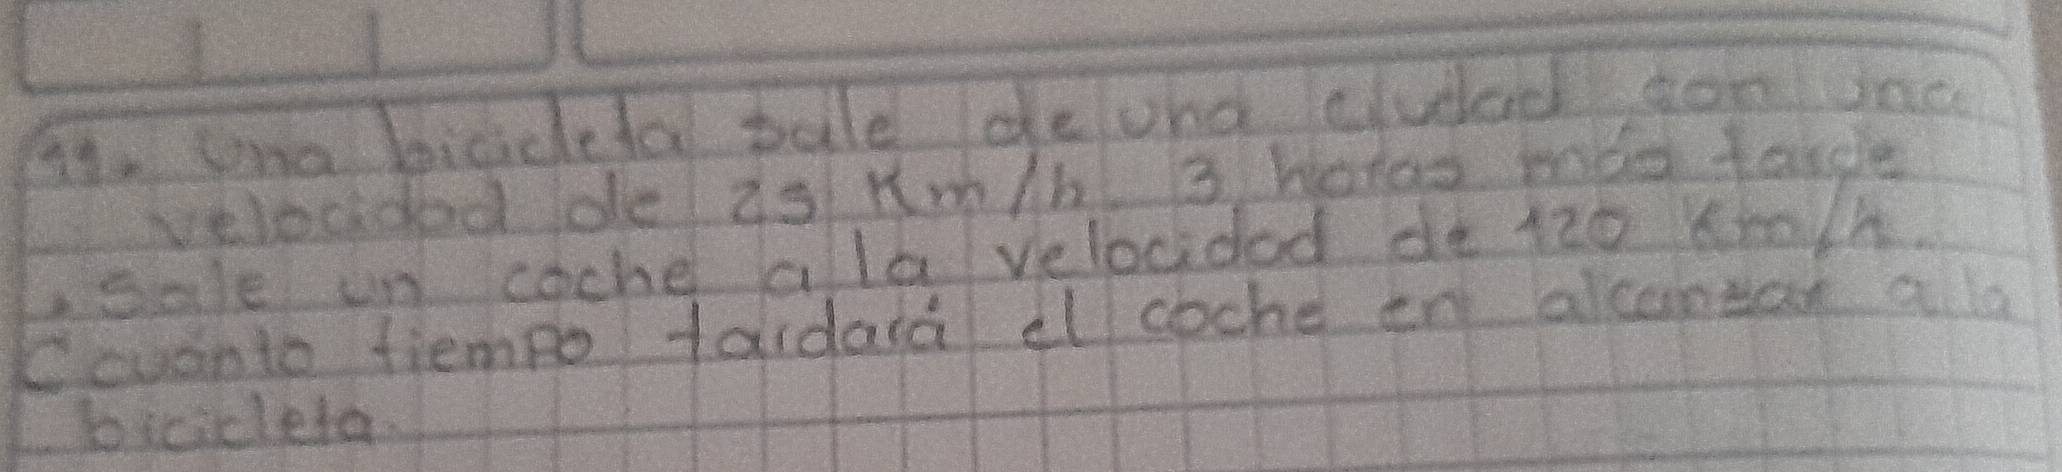 11. Una bicicleta sale de una ciudad con una
velocidad de 25 Km/h. 3 horas más tarde
sale un coche a la velocidad de 120 Km/h.
¿cuánto tiempo tardará el coche en alcanzar a la
bicicleta.